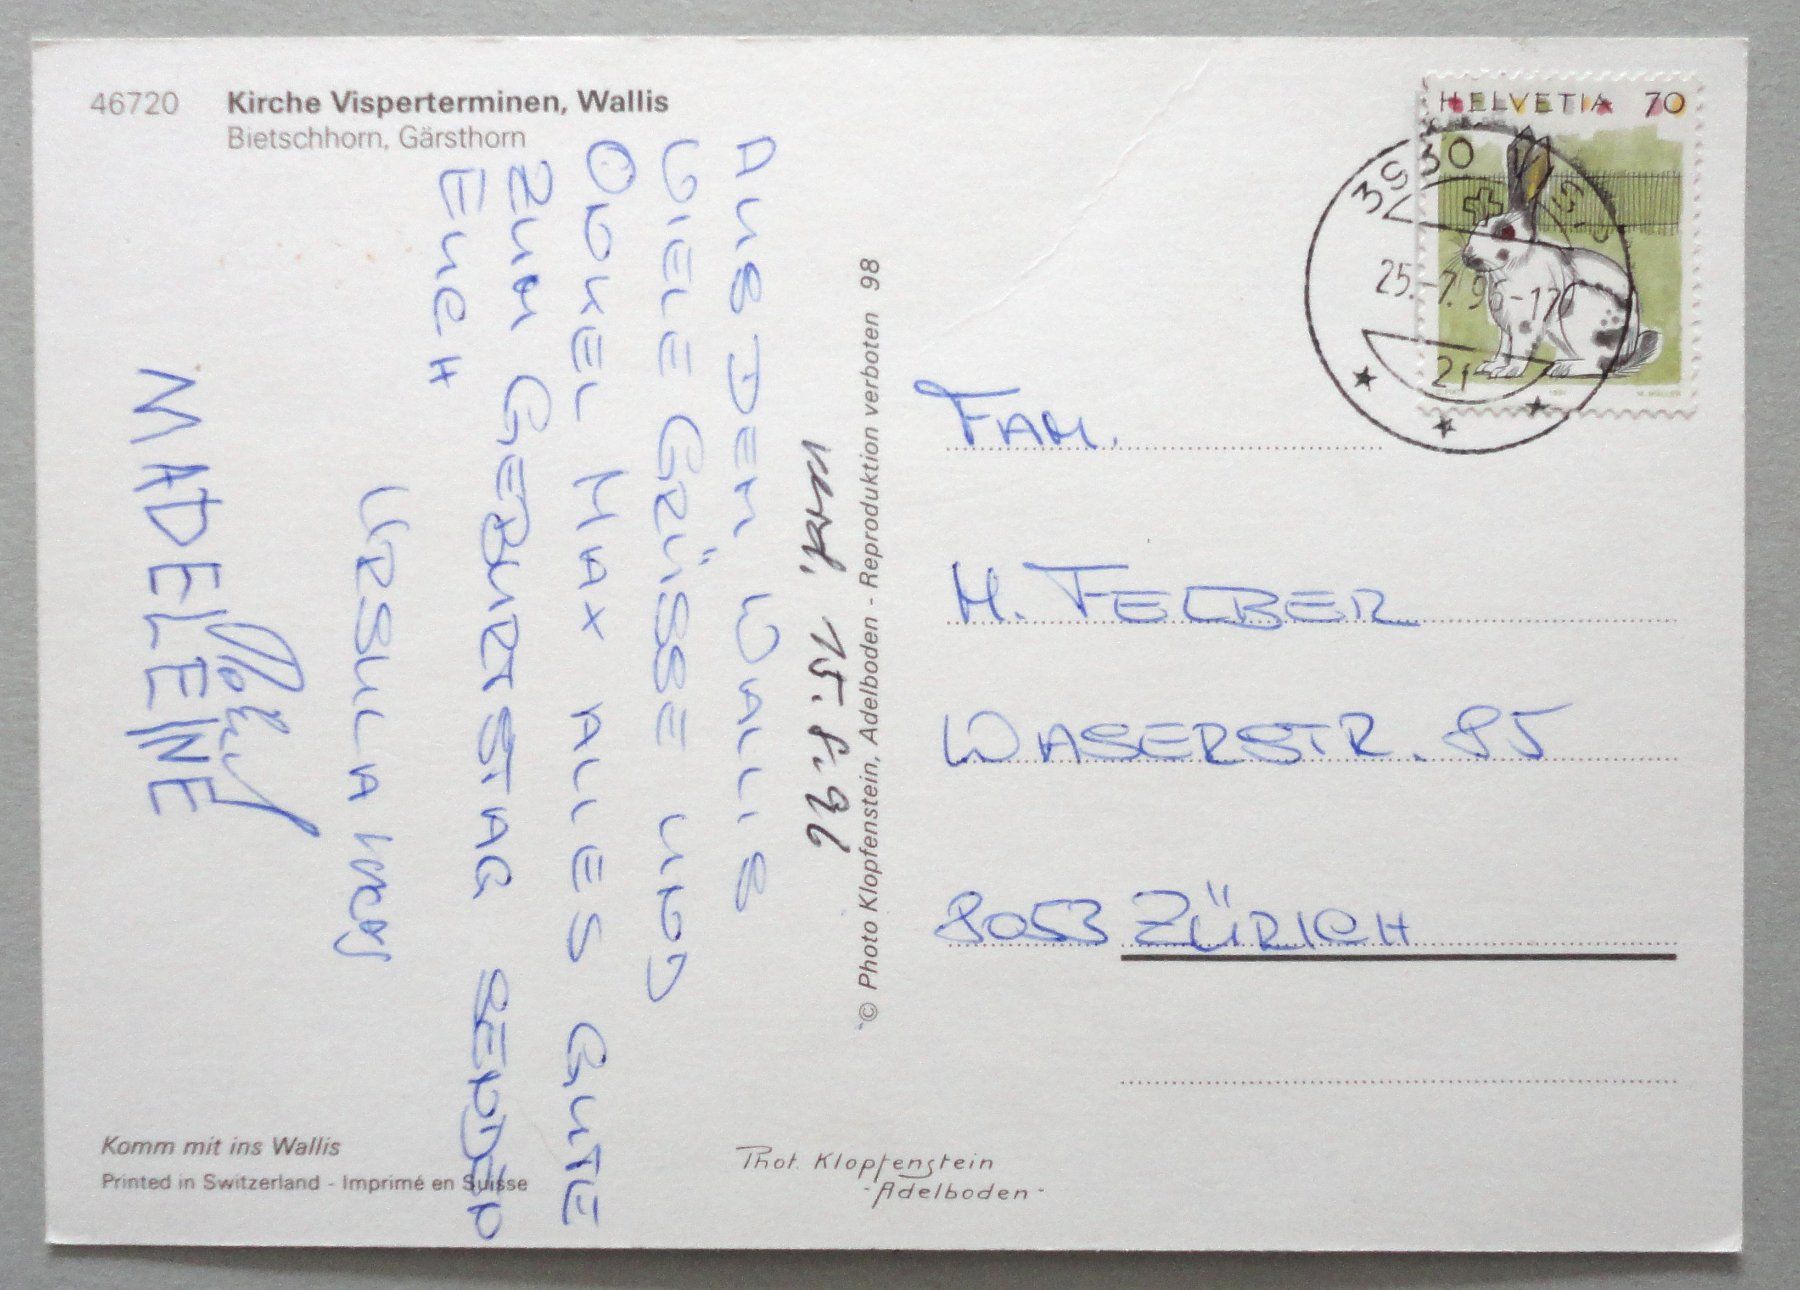 46720 Kirche Visperterminen, Wallis
Bietschhorn, Gärsthorn
AUS DEM WALLIS
VIELE GRÜSSE UND
ONKEL MAX ALLES GUTE
ZUM GEBURTSTAG SENDEN
EUCH
URSULA
MADELEINE
15.8.96
© Photo Klopfenstein, Adelboden - Reproduktion verboten 98
HELVETIA 70
3930
25.-7.96-17
21
FAM.
M. FELBER
WASERSTR. 85
8053 ZÜRICH
Komm mit ins Wallis
Printed in Switzerland - Imprimé en Suisse
Phot. Klopfenstein
- Adelboden -